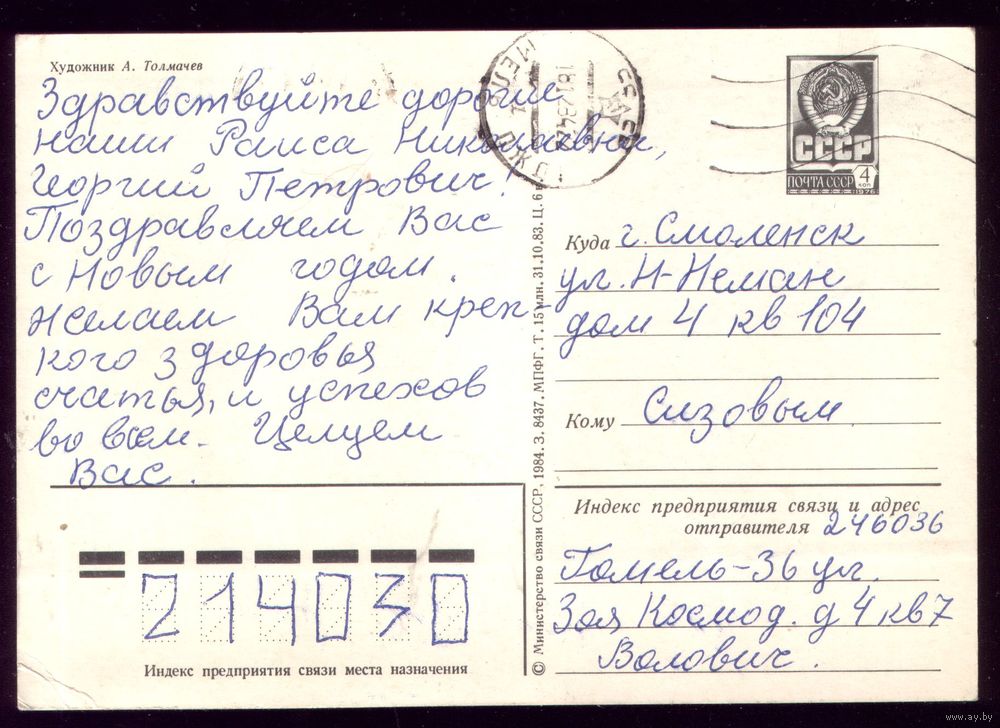 Художник А. Толмачев
Здравствуйте дорогие
наши Раиса Николаевна,
Георгий Петрович!
Поздравляем Вас
с Новым годом.
Желаем Вам креп-
кого здоровья
счастья, и успехов
во всем. Целуем
Вас.
214030
Индекс предприятия связи места назначения
© Министерство связи СССР, 1984. З. 8437. МПФГ. Т. 15 млн. 31.10.83. Ц. 6
СССР
ПОЧТА СССР 4 коп
1976
Куда г. Смоленск
ул. Н-Неман
дом 4 кв 104
Кому Сизовым
Индекс предприятия связи и адрес
отправителя 246036
Гомель-36 ул.
Зои Космод. д 4 кв 7
Волович.
www.ay.by